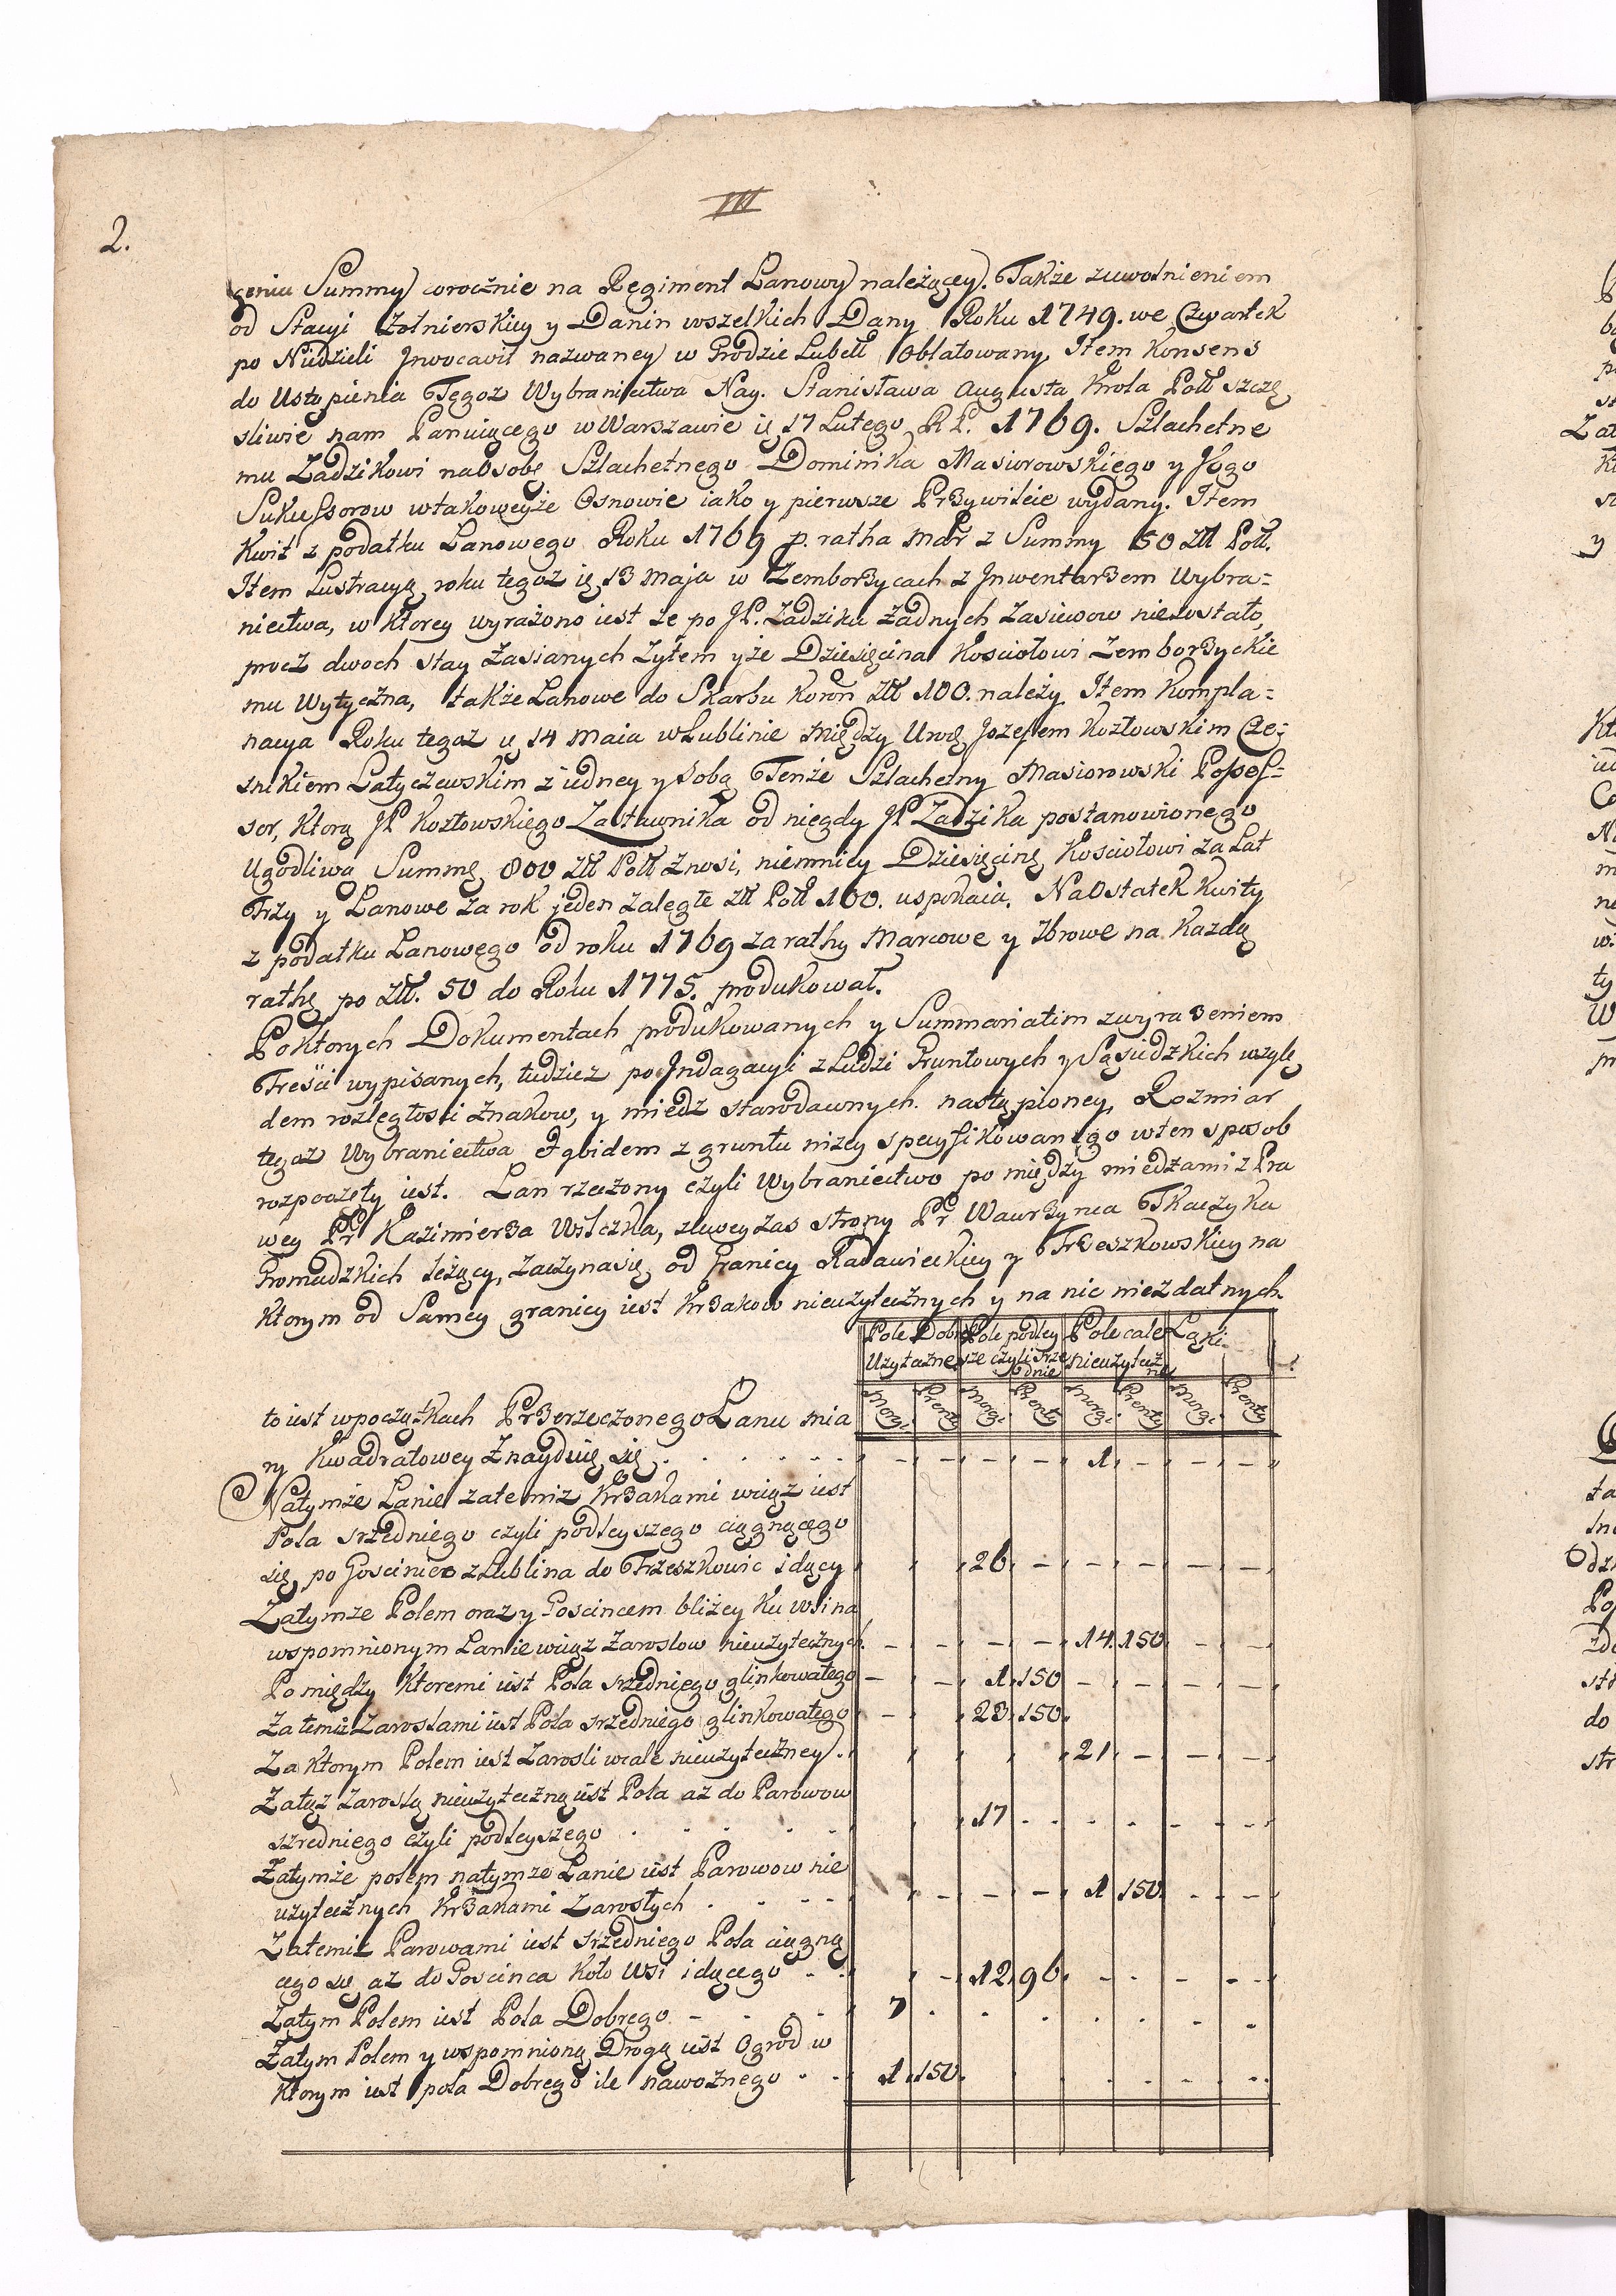 III
2.
ceniu Summy corocznie na Regiment Lanowy należącey. Także zuwolnieniem
od Stacyi Żołnierskiey y Danin wszelkich Dany Roku 1749. we Czwartek
po Niedzieli Invocavit nazwaney w Grodzie Lubell Oblatowany. Item Konsens
do Ustąpienia Tegoz Wybraniectwa Nay. Stanisława Augusta Krola Poll szczę
sliwie nam Panuiącego w Warszawie ię 17 Lutego R P. 1769. Szlachetne
mu Zadzikowi naOsobę Szlachetnego Dominika Masiorowskiego y Jego
Sukcessorow wtakoweyże Osnowie iako y pierwsze Przywileie wydany. Item
Kwit z podatku Lanowego Roku 1769 p. ratha Mar z Summy 50 Złł Poll.
Item Lustracyą roku tegoz ię 13 Maja w Zemborzycach z Jnwentarzem Wybra=
niectwa, w ktorey wyrażono iest że po JP. Zadziku żadnych Zasiewow niezostało,
procz dwoch stay Zasianych Zytem yże Dziesięcina Kosciołowi Zemborzyckie
mu Wytyczna, także Lanowe do Skarbu Koron Złł 100. należy Item Kompla=
nacya Roku tegoz ię 14 Maia wLublinie między Urodz Jozefem Kozłowskim Cze=
snikiem Latyczewskim z iedney y sobą Tenże Szlachetny Masiorowski Posses=
sor, ktorą JP Kozłowskiego Zastawnika od niegdy JP Zadzika postanowionego
Ugodliwą Summę 800 Złł Poll znosi, niemniey Dziesięcinę Kosciołowi za Lat
Trzy y Lanowe za rok jeden zaległe Złł Poll 100. uspokaia. NaOstatek Kwity
z podatku Lanowego od roku 1769 zarathy Marcowe y 7browe na Kazdą
rathę po Złł. 50 do Roku 1775. produkował.
Poktorych Dokumentach produkowanych y Summariatim zwyrażeniem
Treści wypisanych, tudziez po Jndagacyi zLudzi Gruntowych y Sąsiedzkich wzglę
dem rozległości znakow, y miedz starodawnych nastąpioney, Rozmiar
tegoz Wybraniectwa Egbidem z gruntu nizey specyfikowanego wten sposob
rozpoczęty iest. Lan rzeczony czyli Wybraniectwo po między miedzami z Pra
wey Pr Kazimierza Wilczka, zlewey zas strony Pr Wawrzynca Tkaczyka
Gromadzkich leżący, zaczynasię od Granicy Radawieckiey y Trzeszkowskiey na
ktorym od Samey granicy iest Krzakow nieuzytecznych y na nic niezdatnych.
Pole Dobre Uzyteczne Pole podley sze czyli srze dnie Pole cale nieuzytecz ne Łąki
Morgi Prenty Morgi Prenty Morgi Prenty Morgi Prenty
to iest wpoczątkach Przerzeczonego Lanu mia
ry Kwadratowey Znayduię się . . . . . . - - - - 1 - - -
Natymże Lanie zatemiz Krzakami wciąz iest
Pola srzedniego czyli podleyszego ciągnącego
się po Gosciniec zLublina do Trzeszkowic idący 26 - - - - -
Zatymże Polem oraz y Goscincem bliżey ku wsi na
wspomnionym Lanie wciąz Zaroslow nieuzytecznych - - - - 14 150 - -
Pomiędzy ktoremi iest Pola srzedniego glinkowatego - - 1 150 - - - -
Zatemiz Zaroslami iest Pola srzedniego glinkowatego - 23 150
Zaktorym Polem iest Zarosli wcale nieuzyteczney. 21 - - -
Zatąz Zaroslą nieuzyteczną iest Pola aż do Parowow
szredniego czyli podleyszego . . . . . 17 - - - - - -
Zatymże polem natymze Lanie iest Parowow nie
uzytecznych Krzakami Zarosłych . . . . - - - 1 150 - - -
Zatemiz Parowami iest srzedniego Pola ciągną
cego się aż do Goscinca koło Wsi idącego - - - 12 96 - - - - -
Zatym Polem iest Pola Dobrego - - - - 7 . . . . . - -
Zatym Polem y wspomnioną Drogą iest Ogrod w
ktorym iest pola Dobrego ile nawoznego . . 1 150 . . . . .